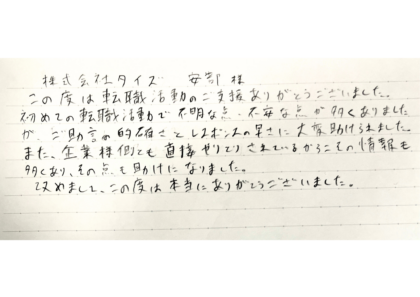 株式会社タイズ 安部 様
この度は転職活動のご支援ありがとうございました。
初めての転職活動で不明な点、不安な点が多くありました
が、ご助言の的確さとレスポンスの早さに大変助けられました。
また、企業様側でも直接やりとりされているからこその情報も
多くあり、その点も助けになりました。
改めまして、この度は本当にありがとうございました。